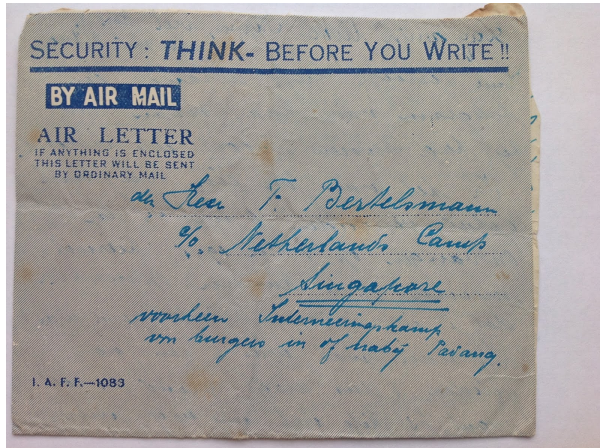 SECURITY : THINK- BEFORE YOU WRITE !!
BY AIR MAIL
AIR LETTER
IF ANYTHING IS ENCLOSED
THIS LETTER WILL BE SENT
BY ORDINARY MAIL
den Heer F. Bertelsmann
c/o Netherlands Camp
Singapore
voorheen Interneeringskamp
von burgers in of nabij Padang.
I. A. F. F.—1083